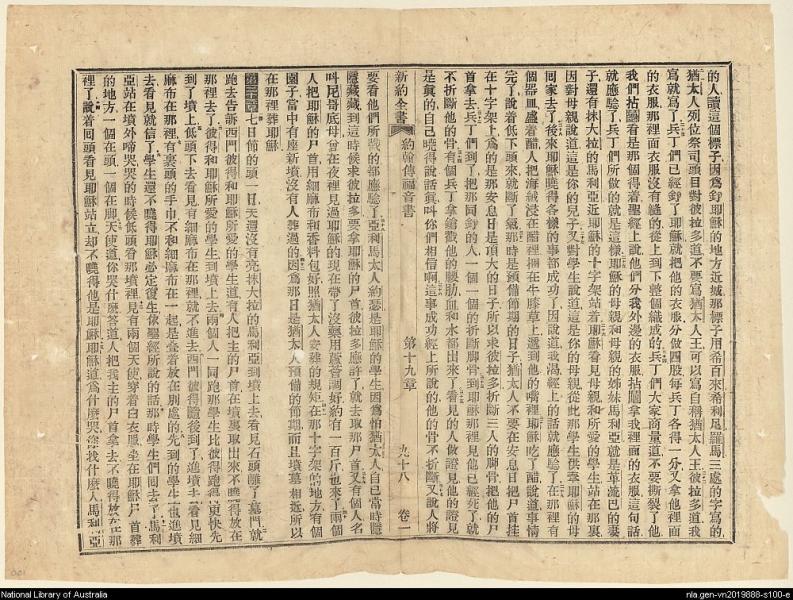 的人讀這個標子因爲釘耶穌的地方近城那標子用希百來希利尼羅馬三處的字寫的
猶太人列位祭司頭目對彼拉多道不要寫猶太人王可以寫自稱猶太人王彼拉多道我
寫就寫了兵丁們已經釘了耶穌就把他的衣服分做四股每兵丁各得一分又拿他裡面
的衣服那裡面衣服沒有縫的從上到下整個織成的兵丁們大家商量道不要撕裂了他
我們拈鬮看是那個得着聖經上說他們分我外邊的衣服拈鬮拿我裡面的衣服這句話
就應驗了兵丁們所做的就是這樣耶穌的母親和母親的姊妹馬利亞就是革流巴的妻
子還有抹大拉的馬利亞近耶穌的十字架站着耶穌看見母親和所愛的學生站在那裏
因對母親說道這是你的兒子又對學生說道這是你的母親從此那學生供養耶穌的母
同家去了後來耶穌曉得各樣的事都成功了因說道我渴經上的話就應驗了在那裡有
個器皿盛着醋人把海絨浸在醋裡捆在牛膝草上遞到他的嘴裡耶穌吃了醋說道事情
完了說着低下頭來就斷了氣那時是預備節期的日子猶太人不要在安息日把尸首挂
在十字架上爲的是那安息日是頂大的日子所以求彼拉多折斷三人的脚骨把他的尸
首拿去兵丁們到了把那同釘的人一個一個的折斷脚骨到耶穌那裡見他已經死了就
不折斷他的骨有個兵丁拿鎗戳他的腰肋血和水都出來了看見的人做證見他的證見
是眞的自己曉得說話眞叫你們相信啊這事成功經上所說的他的骨不折斷又說人將
新約全書 約翰傳福音書 第十九章 九十八 卷一
要看他們所戳的都應驗了亞利馬太人約瑟是耶穌的學生因爲怕猶太人自己常時隱
隱藏藏到這時候求彼拉多要拿耶穌的尸首彼拉多應許了就去取那尸首又有個人名
叫尼哥底母曾在夜裡見過耶穌的現在帶了沒藥用蘆薈調好約有一百斤也來了兩個
人把耶穌的尸首用細麻布和香料包好照猶太人安葬的規矩在那十字架的地方有個
園子當中有座新墳沒有人葬過的因爲那日是猶太人預備的節期而且墳墓相近所以
在那裡葬耶穌
第二十章七日節的頭一日天還沒有亮抹大拉的馬利亞到墳上去看見石頭離了墓門就
跑去告訴西門彼得和耶穌所愛的學生道有人把主的尸首在墳裏取出來不曉得放在
那裡去了彼得和耶穌所愛的學生到墳上去兩個人一同跑那學生比彼得跑得更快先
到了墳上低下頭去看見有細麻布在那裡就不進去西門彼得隨後到了進墳去看見細
麻布在那裡有裹頭的手巾不和細麻布在一起是叠着放在別處的先到的學生也進墳
去看見就信了學生還不曉得耶穌必定復生像聖經所說的話那時學生們回去了馬利
亞站在墳外啼哭哭的時候低頭看那墳裡見有兩個天使穿着白衣服坐在耶穌尸首葬
的地方一個在頭一個在脚天使道你哭什麼答道人把我主的尸首拿去不曉得放在那
裡了說着回頭看見耶穌站立却不曉得他是耶穌耶穌道爲什麼哭你找什麼人馬利亞
National Library of Australia
nla.gen-vn2019888-s100-e